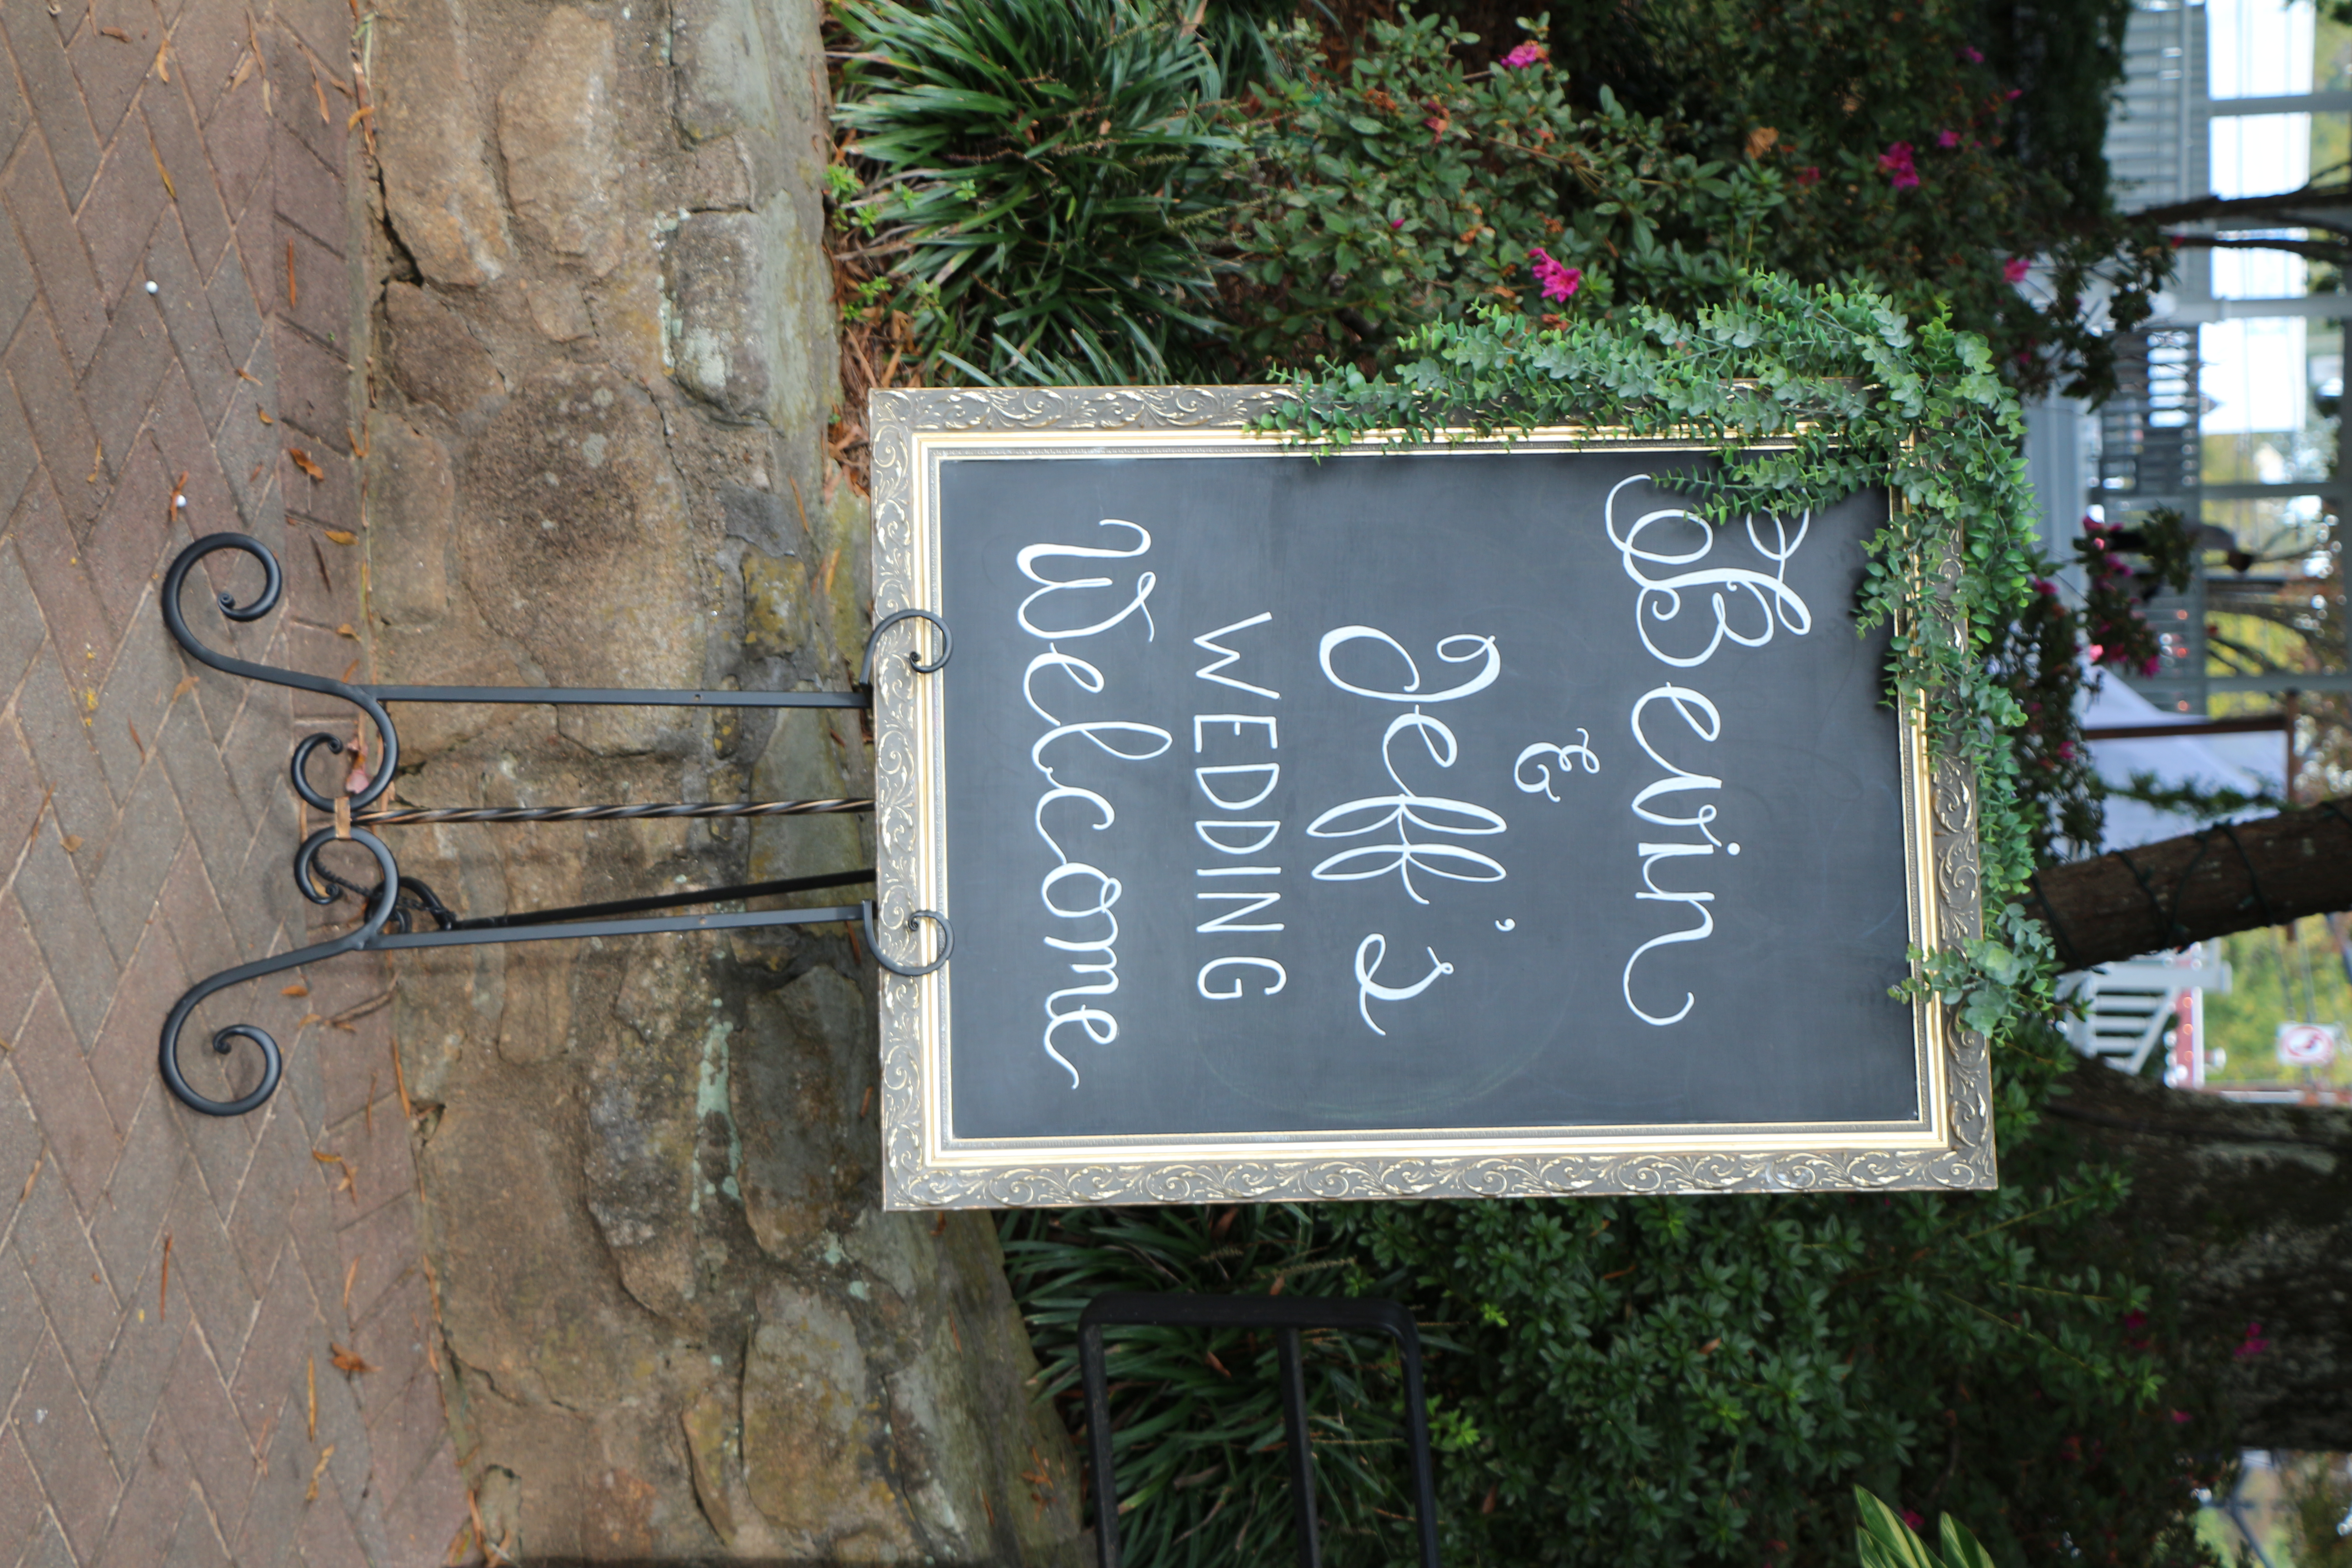 Bevin
&
Jeff's
WEDDING
Welcome